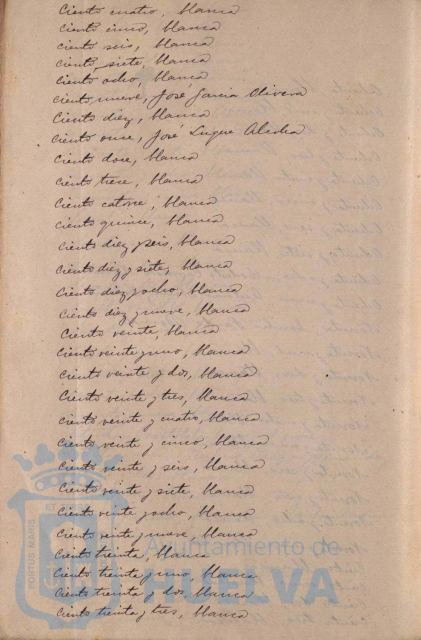 Ciento cuatro, blanca
Ciento cinco, blanca
Ciento seis, blanca
Ciento siete, blanca
Ciento ocho, blanca
Ciento nueve, José Garcia Olivera
Ciento diez, blanca
Ciento once, José Luque
Ciento doce, blanca
Ciento trece, blanca
Ciento catorce, blanca
Ciento quince, blanca
Ciento diez y seis, blanca
Ciento diez y siete, blanca
Ciento diez y ocho, blanca
Ciento diez y nueve, blanca
Ciento veinte, blanca
Ciento veinte y uno, blanca
Ciento veinte y dos, blanca
Ciento veinte y tres, blanca
Ciento veinte y cuatro, blanca
Ciento veinte y cinco, blanca
Ciento veinte y seis, blanca
Ciento veinte y siete, blanca
Ciento veinte y ocho, blanca
Ciento veinte y nueve, blanca
Ciento treinta, blanca
Ciento treinta y uno, blanca
Ciento treinta y dos, blanca
Ciento treinta y tres, blanca
PORTUS MARIS
ET
Ayuntamiento de
HUELVA